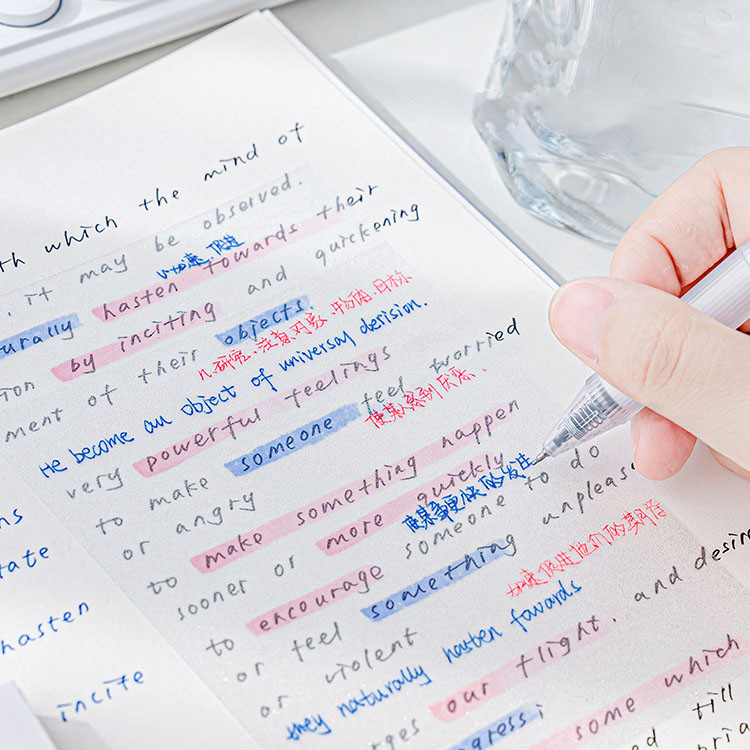 th which the mind of
it may be observed.
v.加速,促进
urally hasten towards their
tion by inciting and quickening
ment of their objects.
n.研究、注意对象、物体、目标
He become an object of universal derision.
very powerful feelings
to make someone feel worried
使某人感到厌恶.
or angry
to make something happen
sooner or more quickly
使某事更快的发生
to encourage someone to do
or feel something unpleas
加速促进他们的
or violent
they naturally hasten fowards
rges our flight. and desir
ogress;
some which
till
ns
tate
hasten
incite